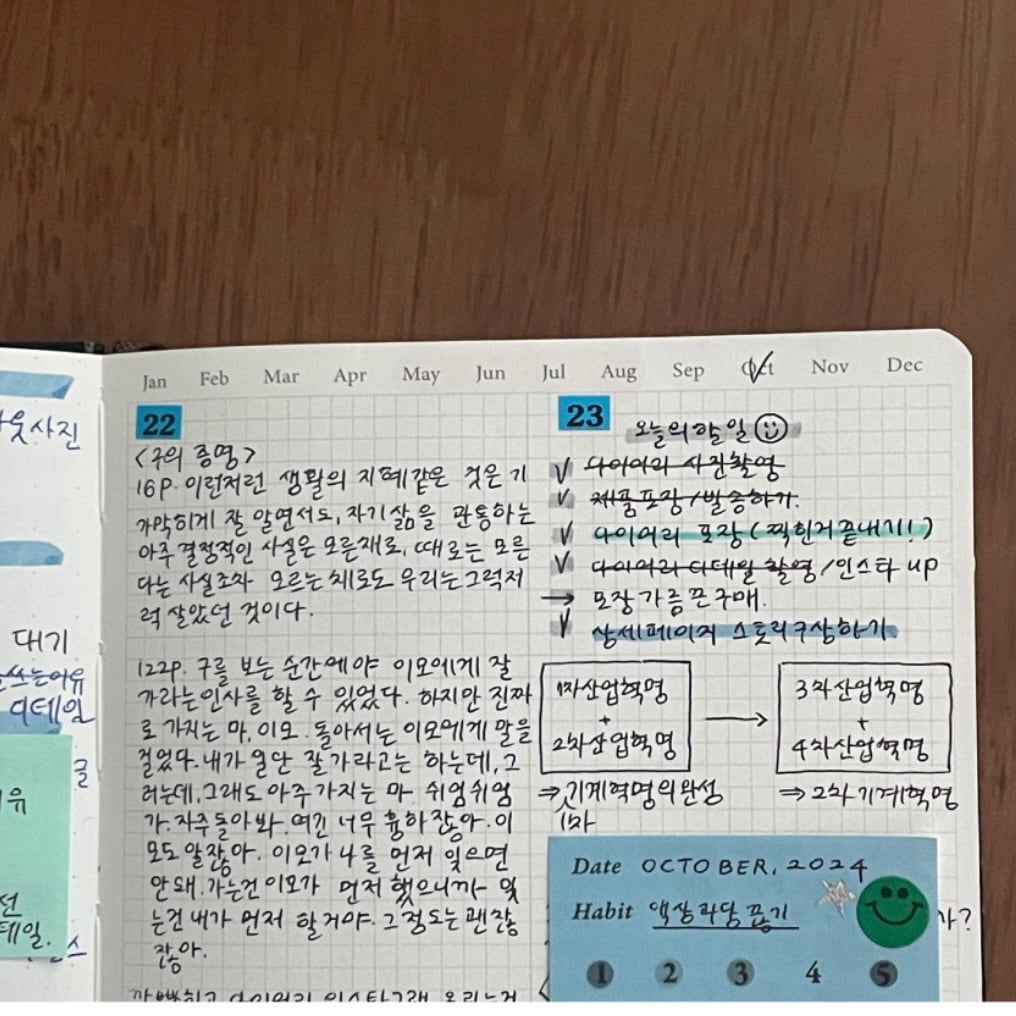 Jan Feb Mar Apr May Jun Jul Aug Sep Oct Nov Dec
22
<구의 증명>
16P. 이런저런 생활의 지혜같은 것은 기
가막히게 잘 알면서도, 자기삶을 관통하는
아주 결정적인 사실은 모른채로, 때로는 모른
다는 사실조차 모르는 채로도 우리는 그럭저
럭 살았던 것이다.
122p. 구를 보는 순간에야 이모에게 잘
가라는 인사를 할 수 있었다. 하지만 진짜
로 가지는 마, 이모. 돌아서는 이모에게 말을
걸었다. 내가 일단 잘 가라고는 하는데, 그
러는데, 그래도 아주 가지는 마. 쉬엄쉬엄
가. 자주 돌아봐. 여긴 너무 흉하잖아. 이
모도 알잖아. 이모가 나를 먼저 잊으면
안돼. 가는건 이모가 먼저 했으니까 잊
는건 내가 먼저 할거야. 그 정도는 괜찮
잖아.
23
오늘의 할 일
다이어리 사진촬영
제품포장/발송하기.
다이어리 포장 (찍힌거 끝내기!)
다이어리 디테일 촬영/인스타 up
→ 모장가증끈구매.
상세페이지 스토리구상하기.
1차산업혁명
+
2차산업혁명
→
3차산업혁명
+
4차산업혁명
⇒ 기계혁명의 완성
1차
⇒ 2차 기계혁명
Date OCTOBER, 2024
Habit 액상과당 끊기
1 2 3 4 5
가?
웃사진
대기
디테일
글
유
선
테일.